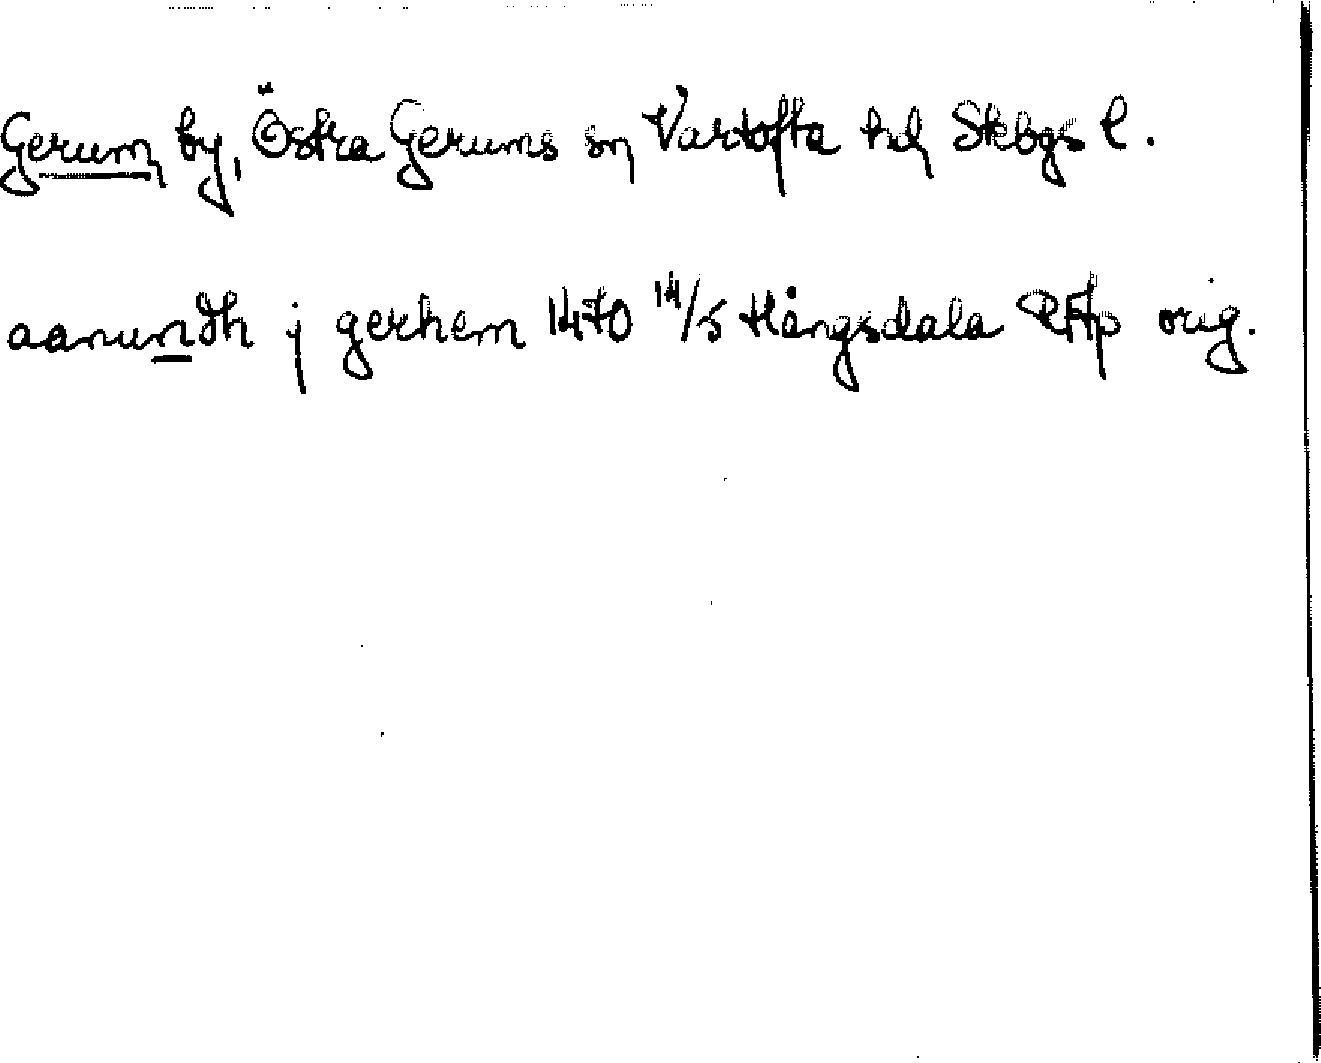 Gerum, by, Östra Gerums sn, Vartofta hd, Skbgs l.
aanundh j gerhem 1470 14/5 Hångsdala RAp orig.